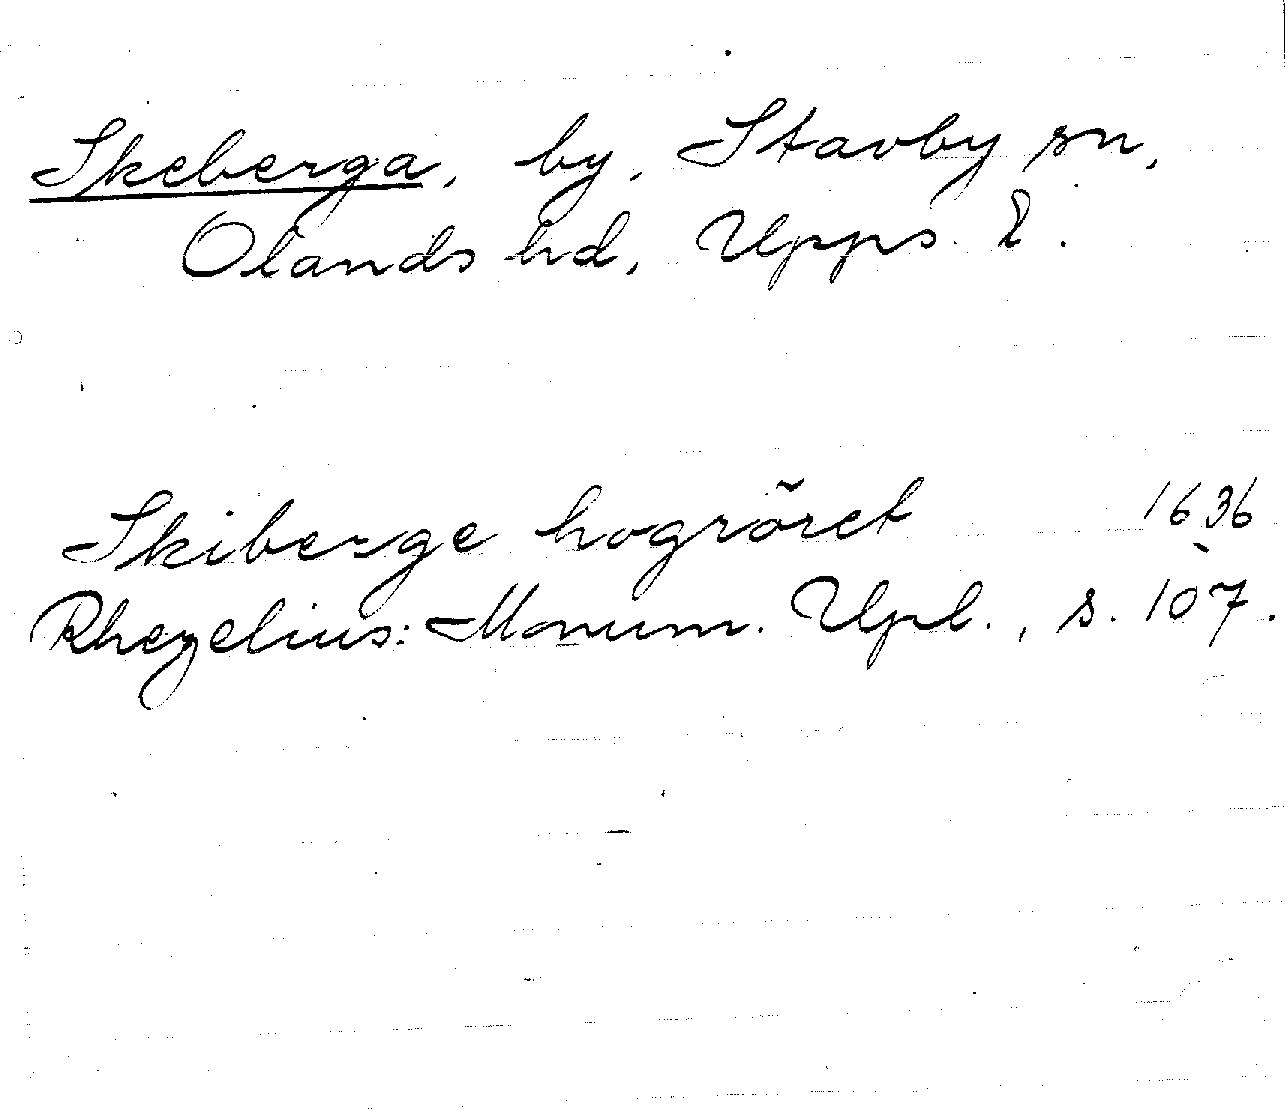 Skeberga, by, Stavby sn,
Olands hd, Upps. l.
Skiberge hogröret 1636
Rhezelius: Monum. Upl., s. 107.